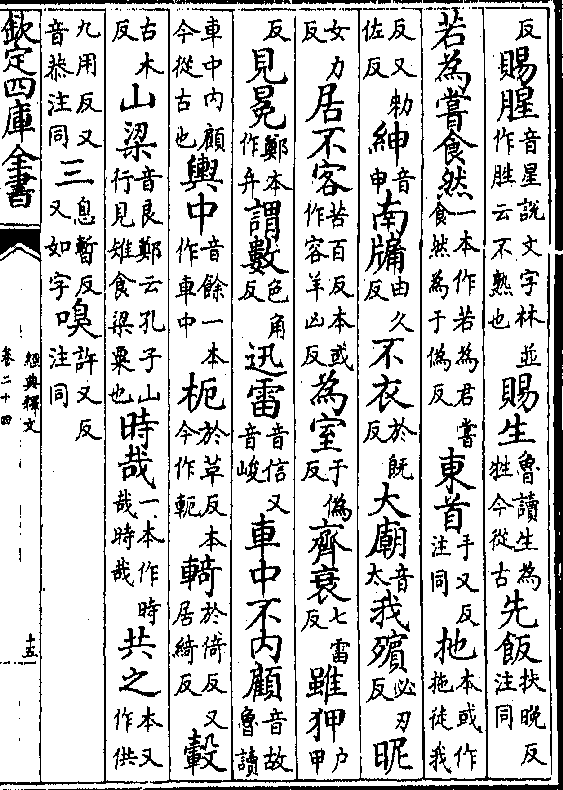 反賜腥音星說文字林並作胜云不熟也賜生魯讀生為牲今從古先飯扶晚反注同
若為嘗食然一本作若為君嘗食然為于偽反東首手又反注同扡本或作拖徒我
反又勑佐反紳音申南牖由久反不衣於旣反大廟音太我殯必刃反昵
女力反居不客苦百反本或作容羊凶反為室于偽反齊衰七雷反雖狎户甲
反見冕鄭本作弁謂數色角反迅雷音信又音峻車中不内顧音故魯讀
車中内顧今從古也輿中音餘一本作車中枙於草反本今作軛輢於倚反又居綺反轂
古木反山梁音良鄭云孔子山行見雉食梁粟也時哉一本作時哉時哉共之本又作供
九用反又音恭注同三息暫反又如字嗅許又反注同
欽定四庫全書
經典釋文
卷二十四
十五